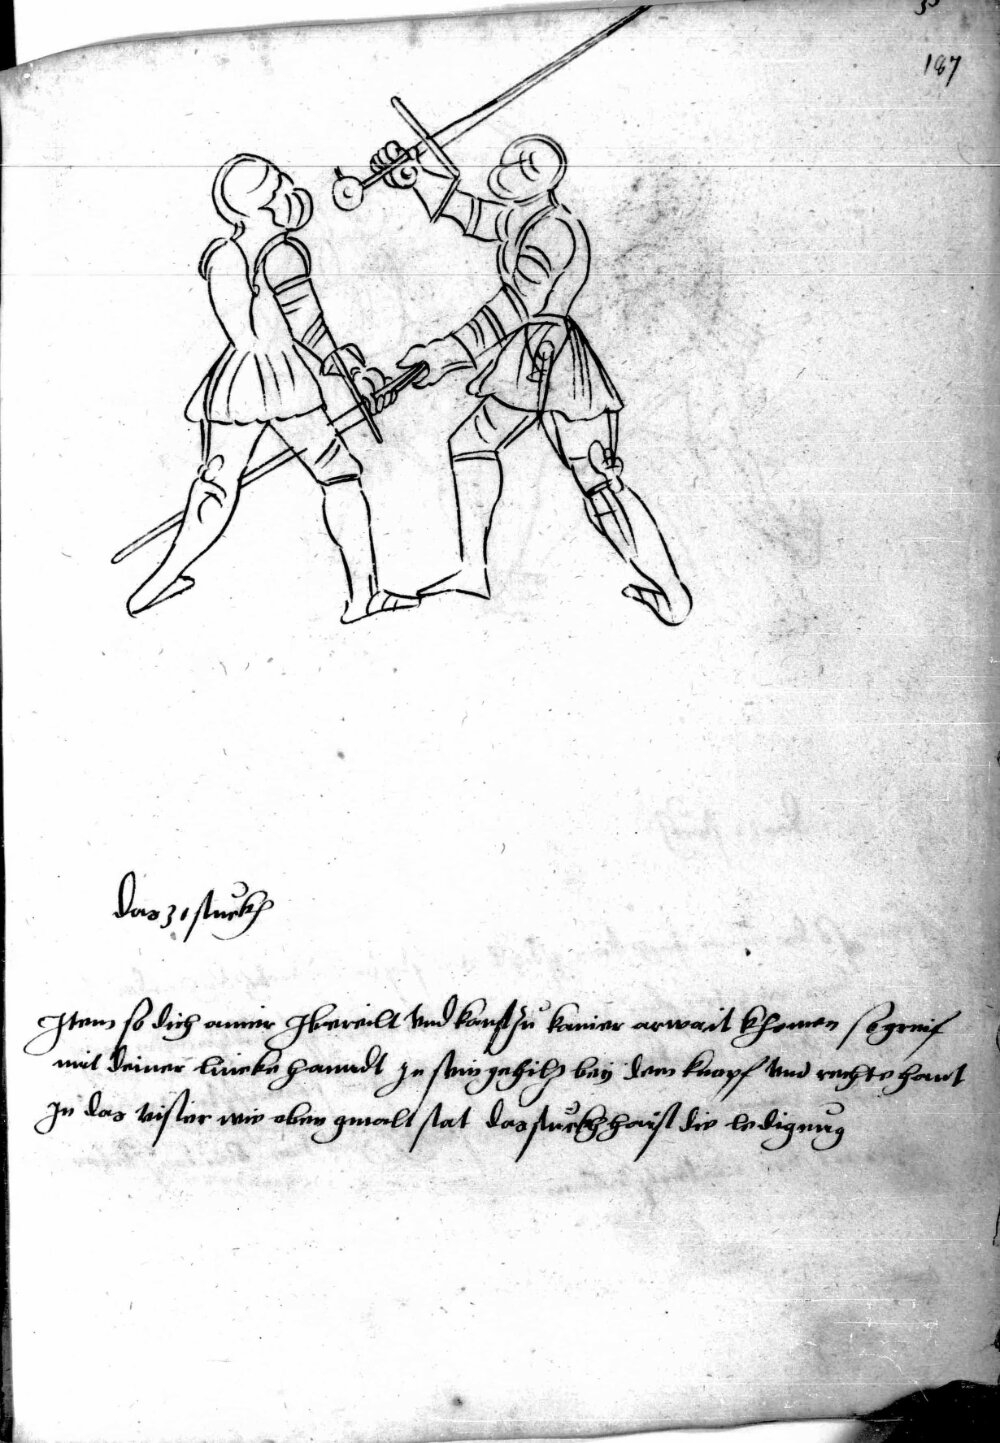 187
Das 31 stuckh
Item so dich ainer Ibereilt vnd kanst zu kainer arwait khomen so greif
mit deiner lincke hanndt In sein gehilz bey dem knopf vnd rechte hant
In das visier wie oben gmalt stat das stuckh haist die ledigung